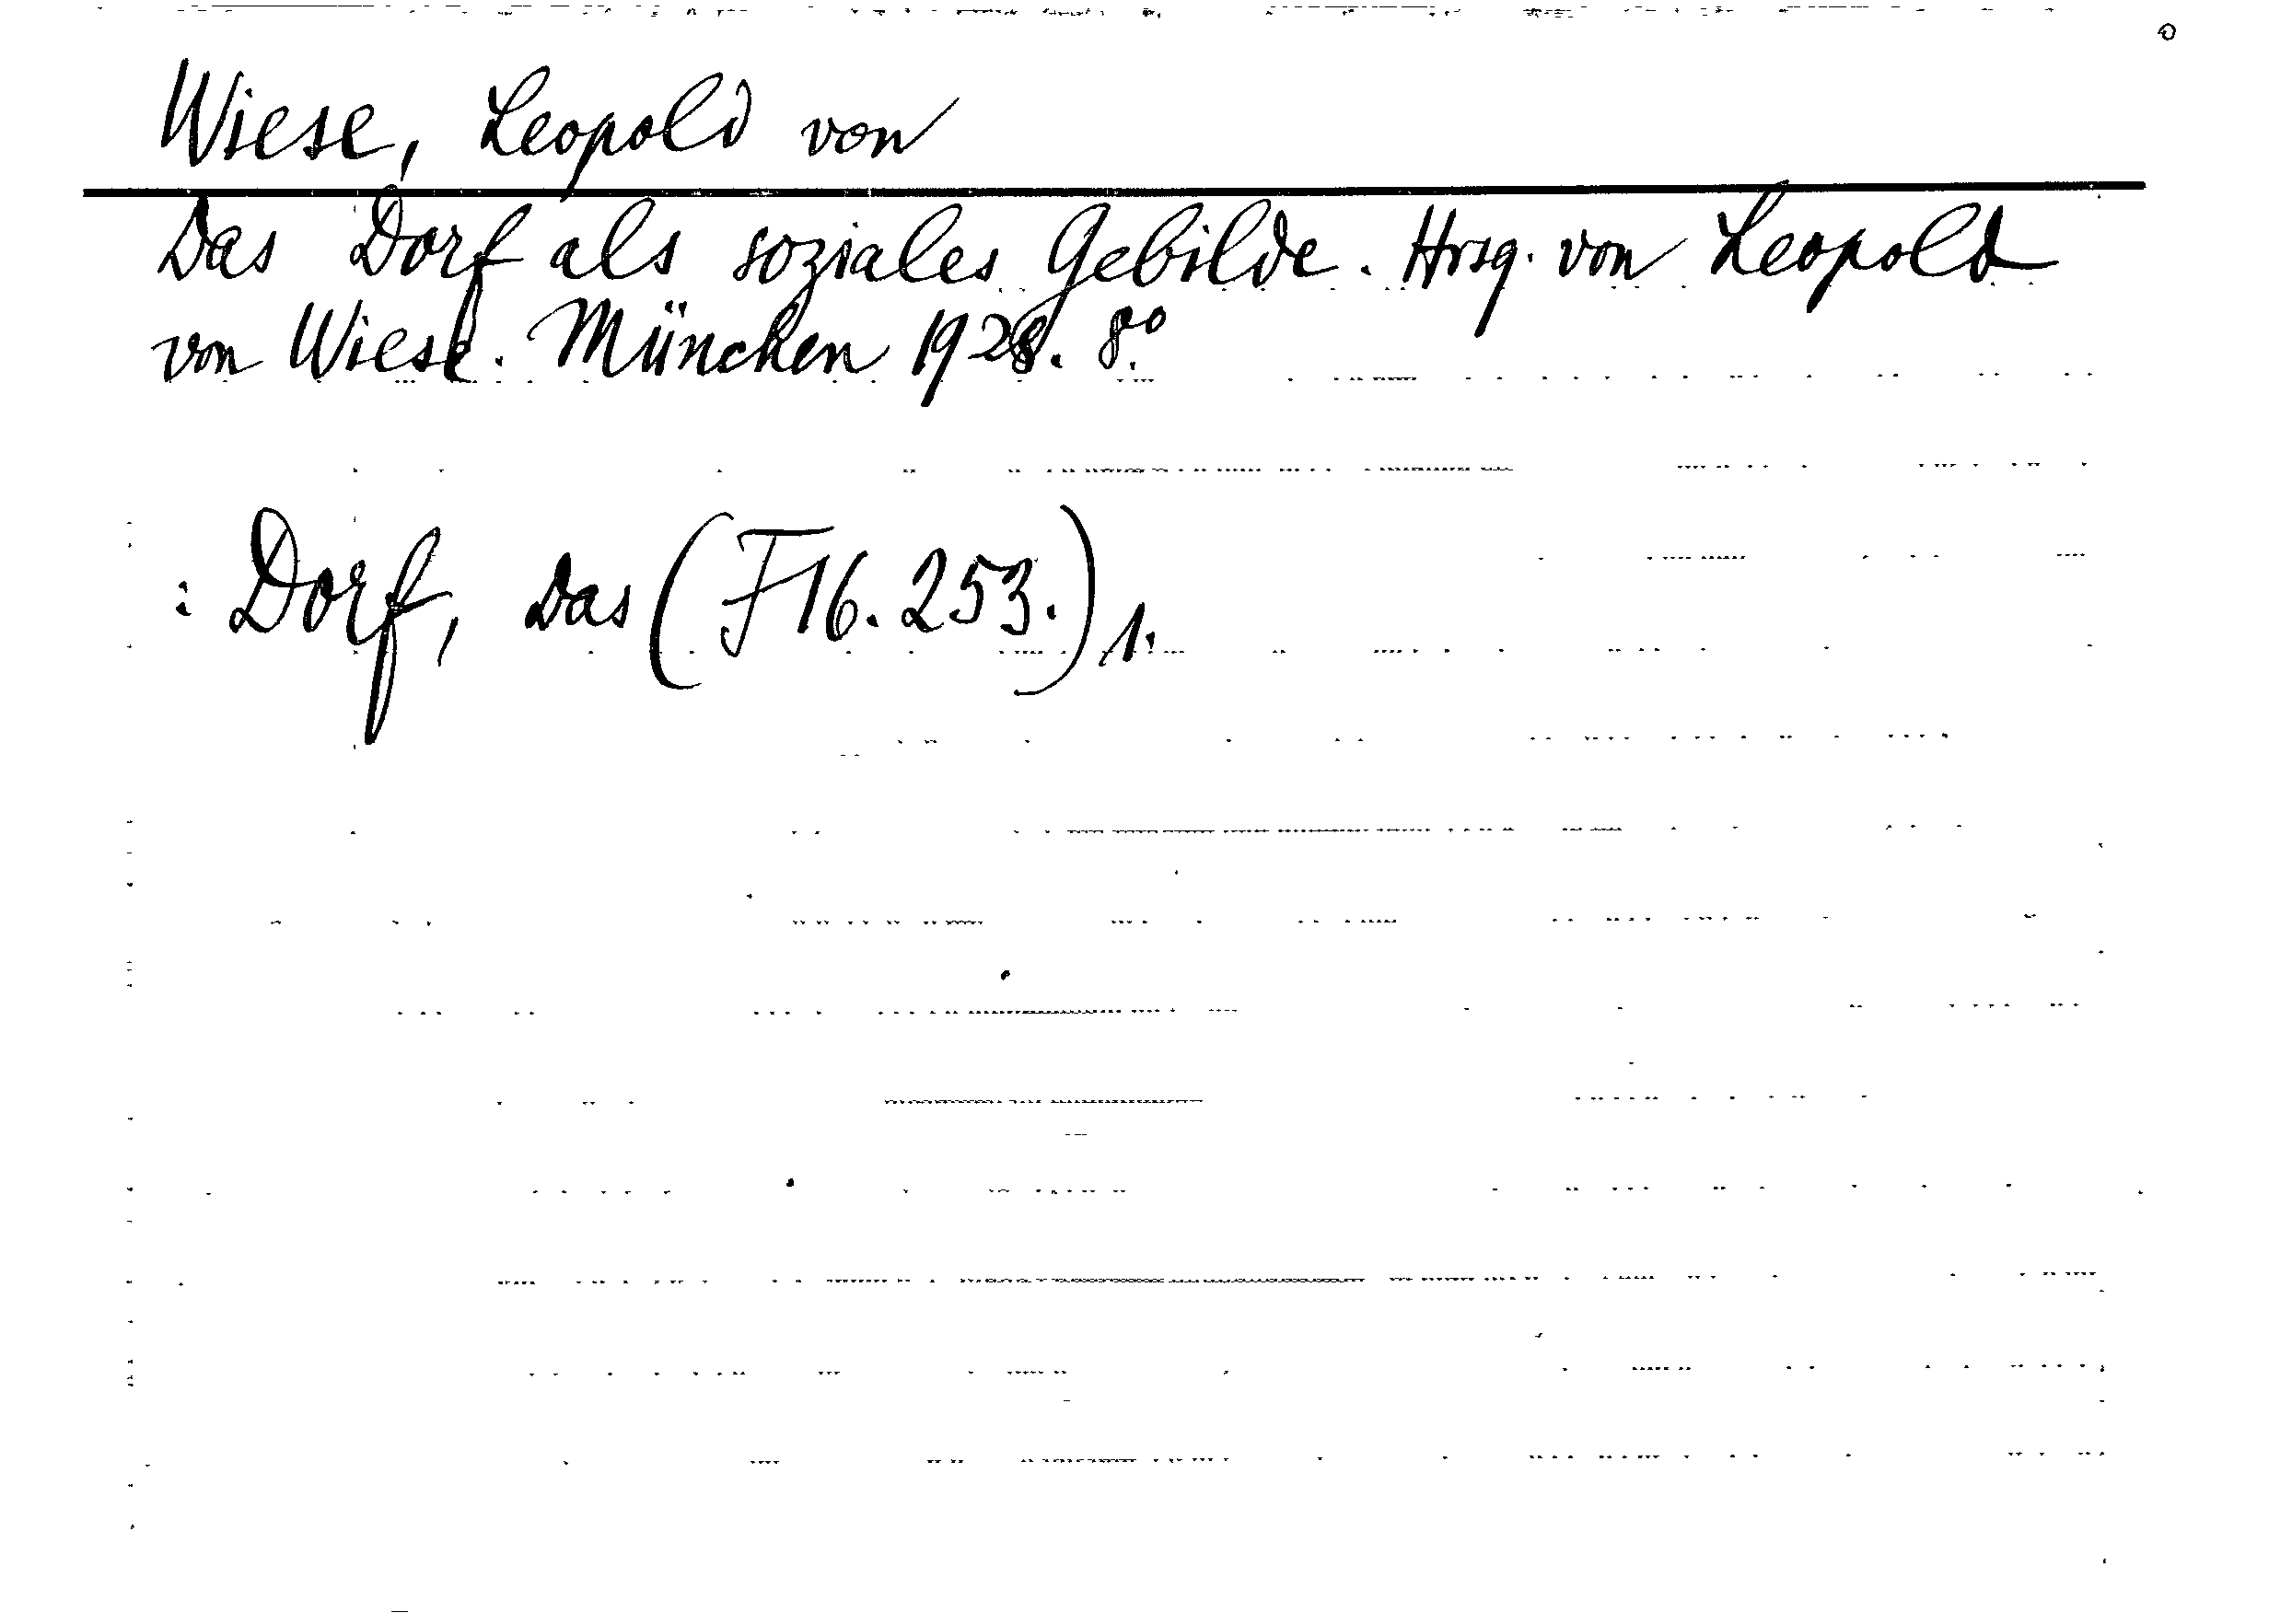 Wiese, Leopold von
Das Dorf als soziales Gebilde. Hrsg. von Leopold
von Wiese. München 1928. 8°.
: Dorf, Das (F16.253.) 1.